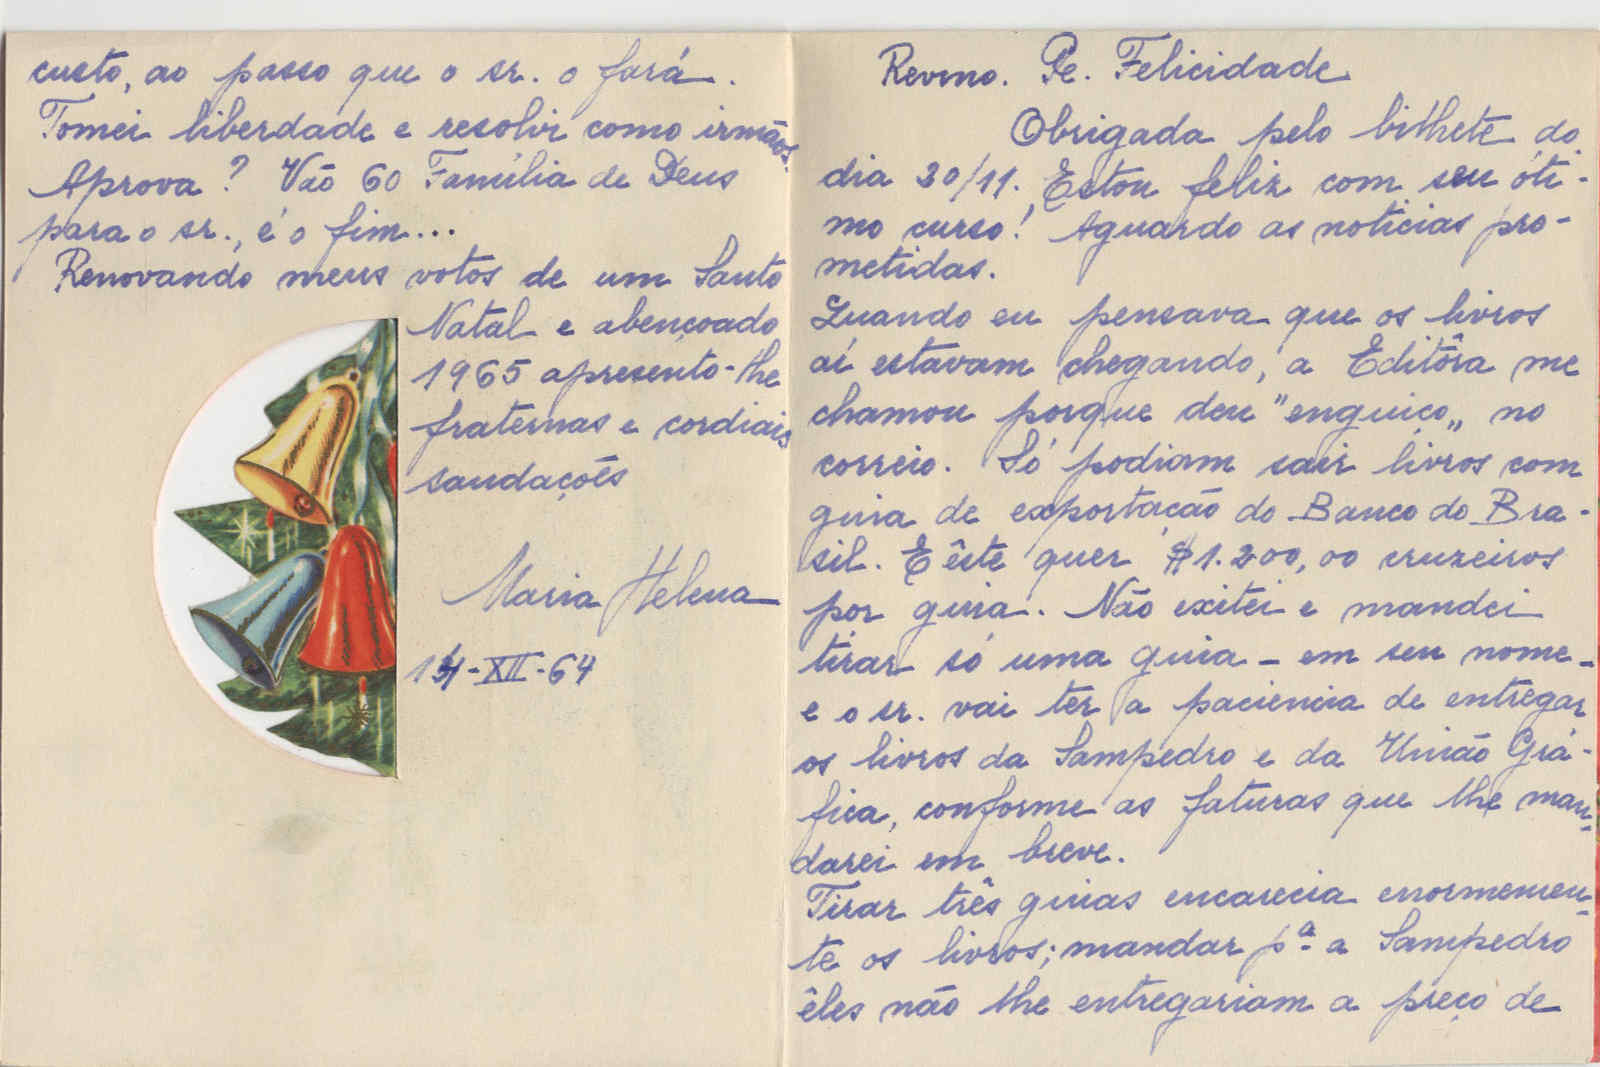 Revmo. Pe. Felicidade
Obrigada pelo bilhete do
dia 30/11. Estou feliz com seu óti-
mo curso! Aguardo as noticias pro-
metidas.
Quando eu pensava que os livros
aí estavam chegando, a Editôra me
chamou porque deu "enguiço" no
correio. Só podiam sair livros com
guia de exportação do Banco do Bra-
sil. E êste quer $1.200,00 cruzeiros
por guia. Não exitei e mandei
tirar só uma guia - em seu nome -
e o sr. vai ter a paciencia de entregar
os livros da Sampedro e da União Grá-
fica, conforme as faturas que lhe man-
darei em breve.
Tirar três guias encarecia enormemen-
te os livros; mandar pª a Sampedro
êles não lhe entregariam a preço de
custo, ao passo que o sr. o fará.
Tomei liberdade e resolvi como irmãos.
Aprova? Vão 60 Família de Deus
para o sr., é o fim...
Renovando meus votos de um Santo
Natal e abençoado
1965 apresento-lhe
fraternas e cordiais
saudações
Maria Helena
14-XII-64